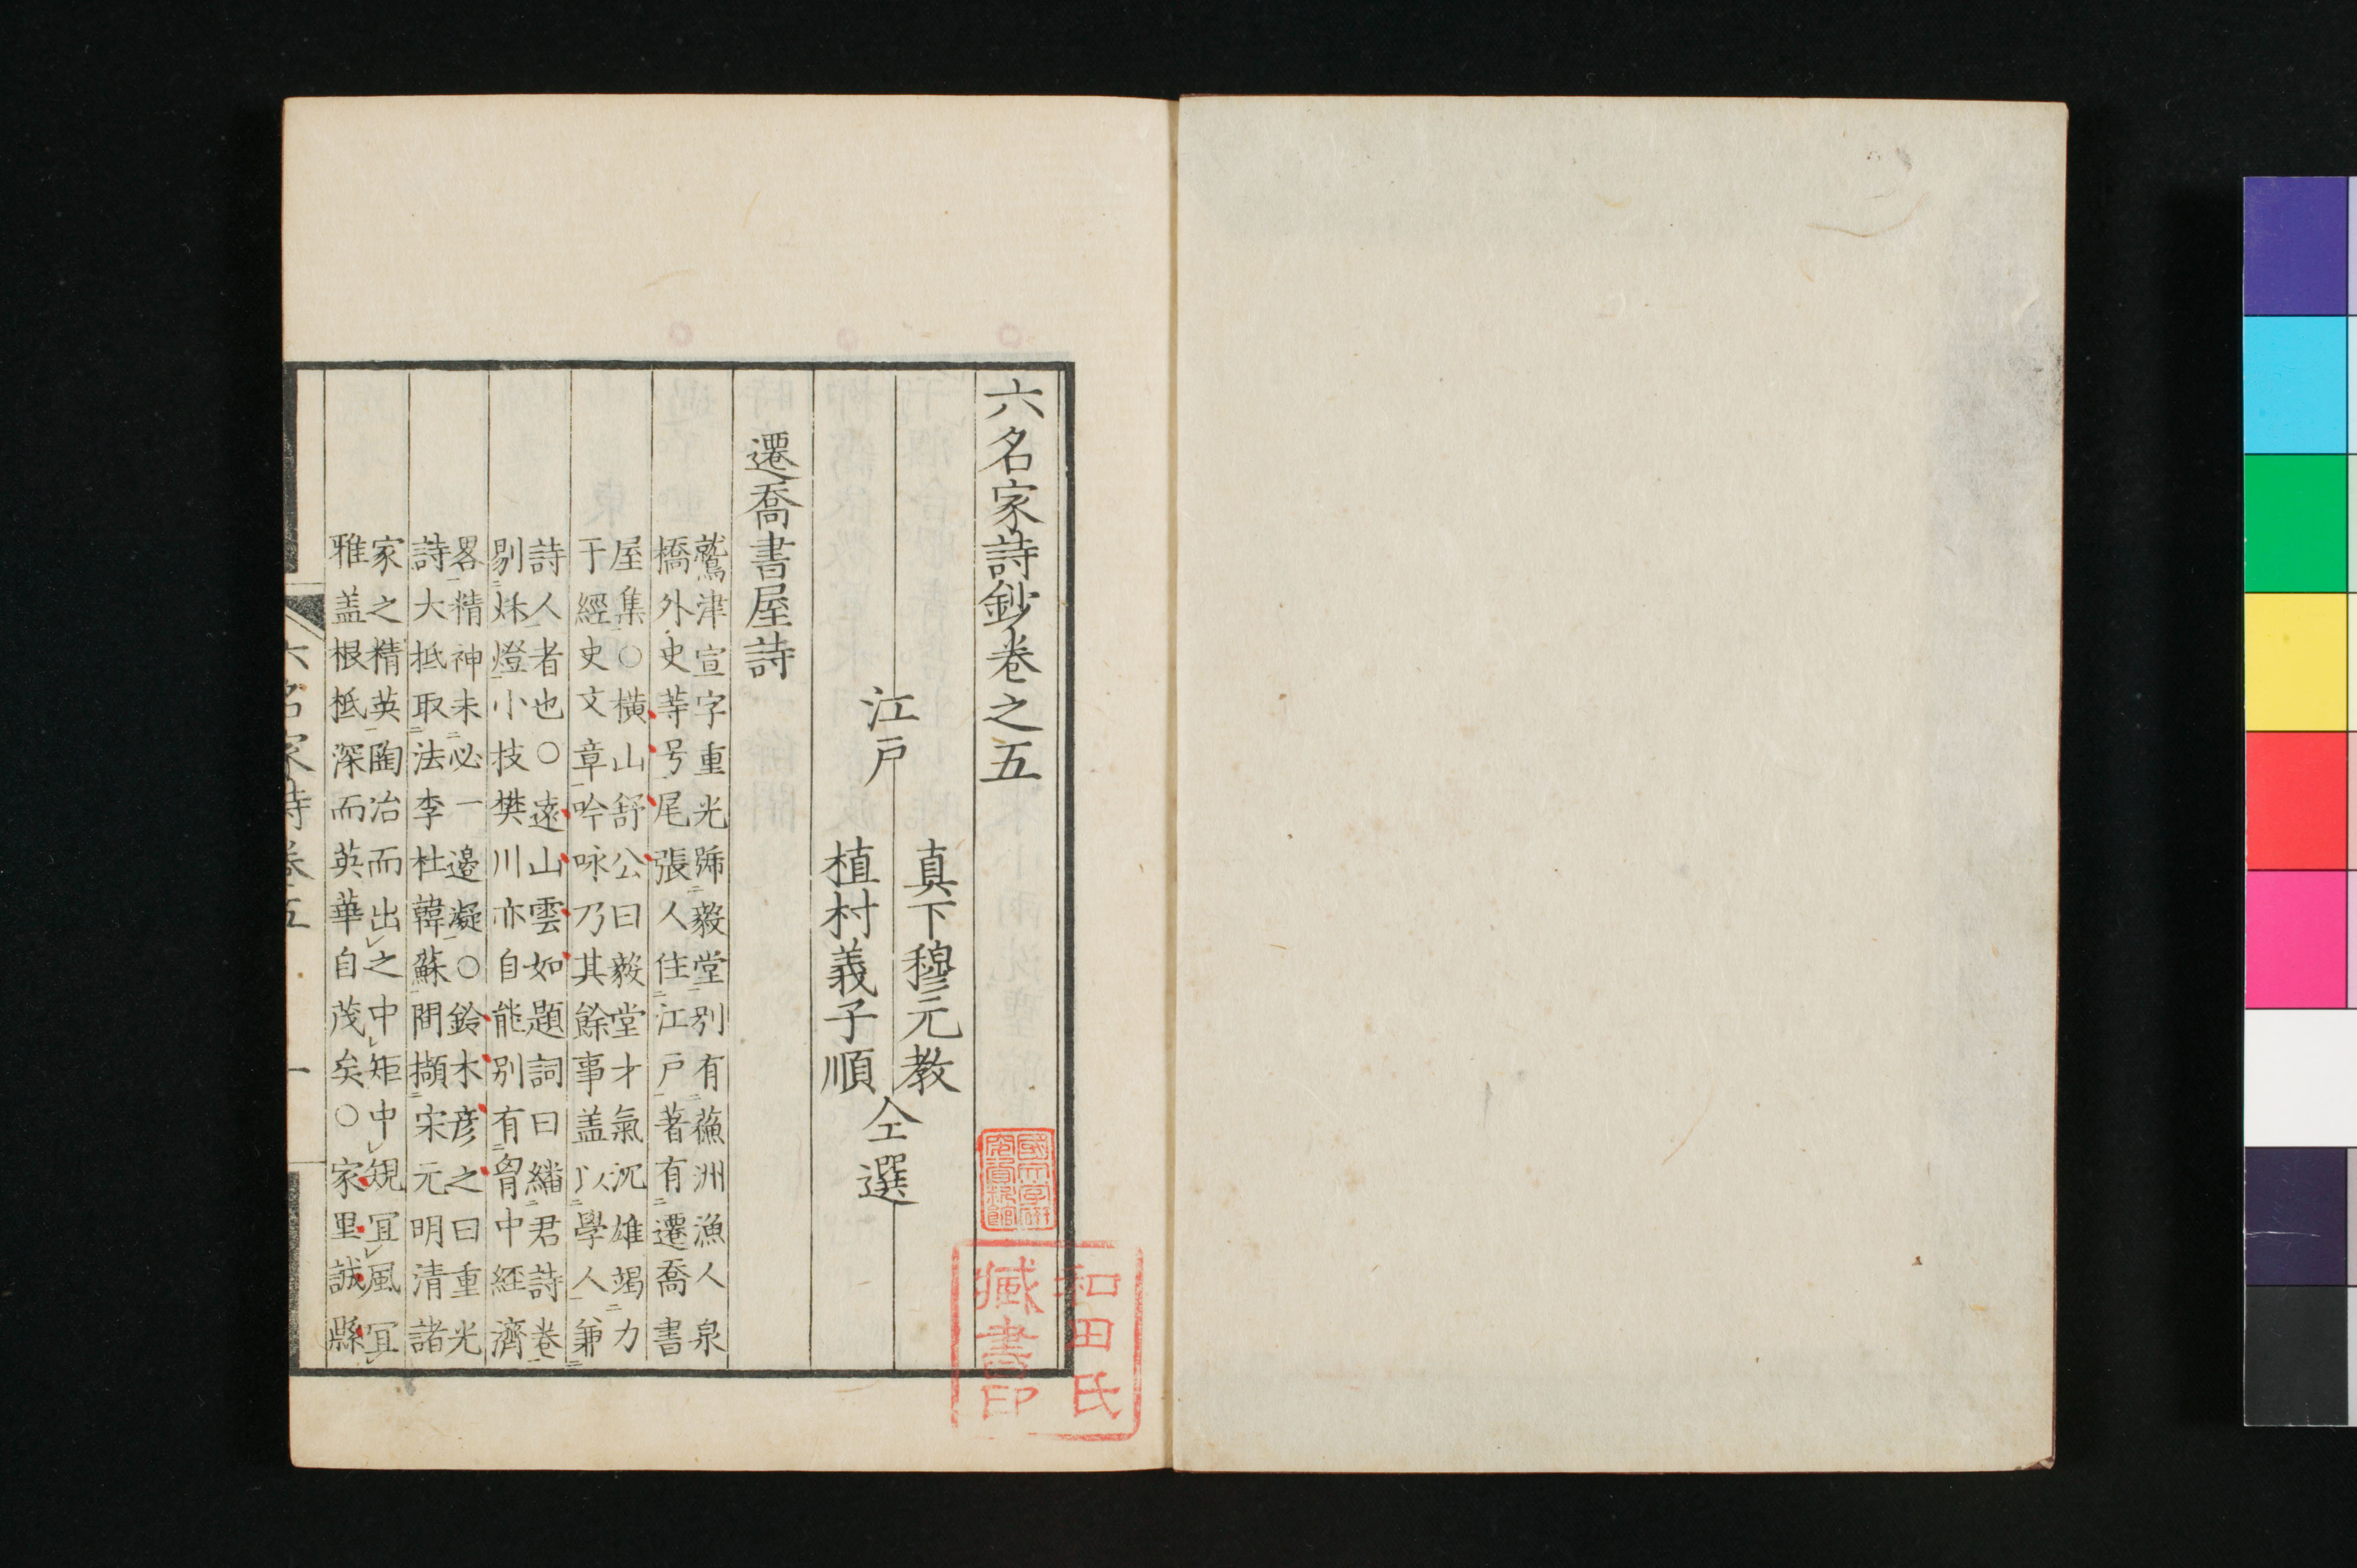 六名家詩鈔卷之五
江戸
真下穆元教
植村義子順
仝選
遷喬書屋詩
鷲津宣字重光號毅堂別有蘓洲漁人泉
橋外史䓁号尾張人住江戸著有遷喬書
屋集○橫山舒公曰毅堂才氣沉雄竭力
于經史文章吟咏乃其餘事盖以學人兼
詩人者也○遠山雲如題詞曰繙君詩卷
剔秌燈小技樊川亦自能别有胷中經濟
畧精神未必一邊凝○鈴木彦之曰重光
詩大抵取法李杜韓蘇間擷宋元明清諸
家之精英陶冶而出之中矩中規宜風宜
雅盖根柢深而英華自茂矣○家里誠縣
六名家詩卷五
一
和田氏
藏書印